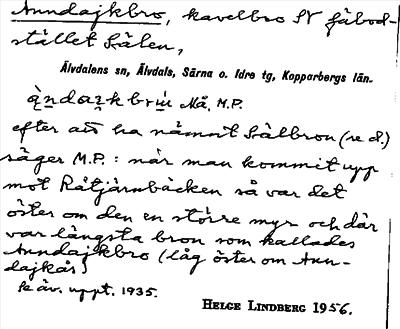 Anndajkbro, kavelbro SV fäbod-
stället Sälen,
Älvdalens sn, Älvdals, Särna o. Idre tg, Kopparbergs län.
Nå, M.P.
efter att ha nämnt Sälbron (se d.)
säger M.P.: när man kommit upp
mot Råtjärnbäcken så var det
öster om den en större myr och där
var längsta bron som kallades
Anndajkbro (låg öster om Ann-
dajkås)
Se äv. uppt. 1935.
HELGE LINDBERG 1956.